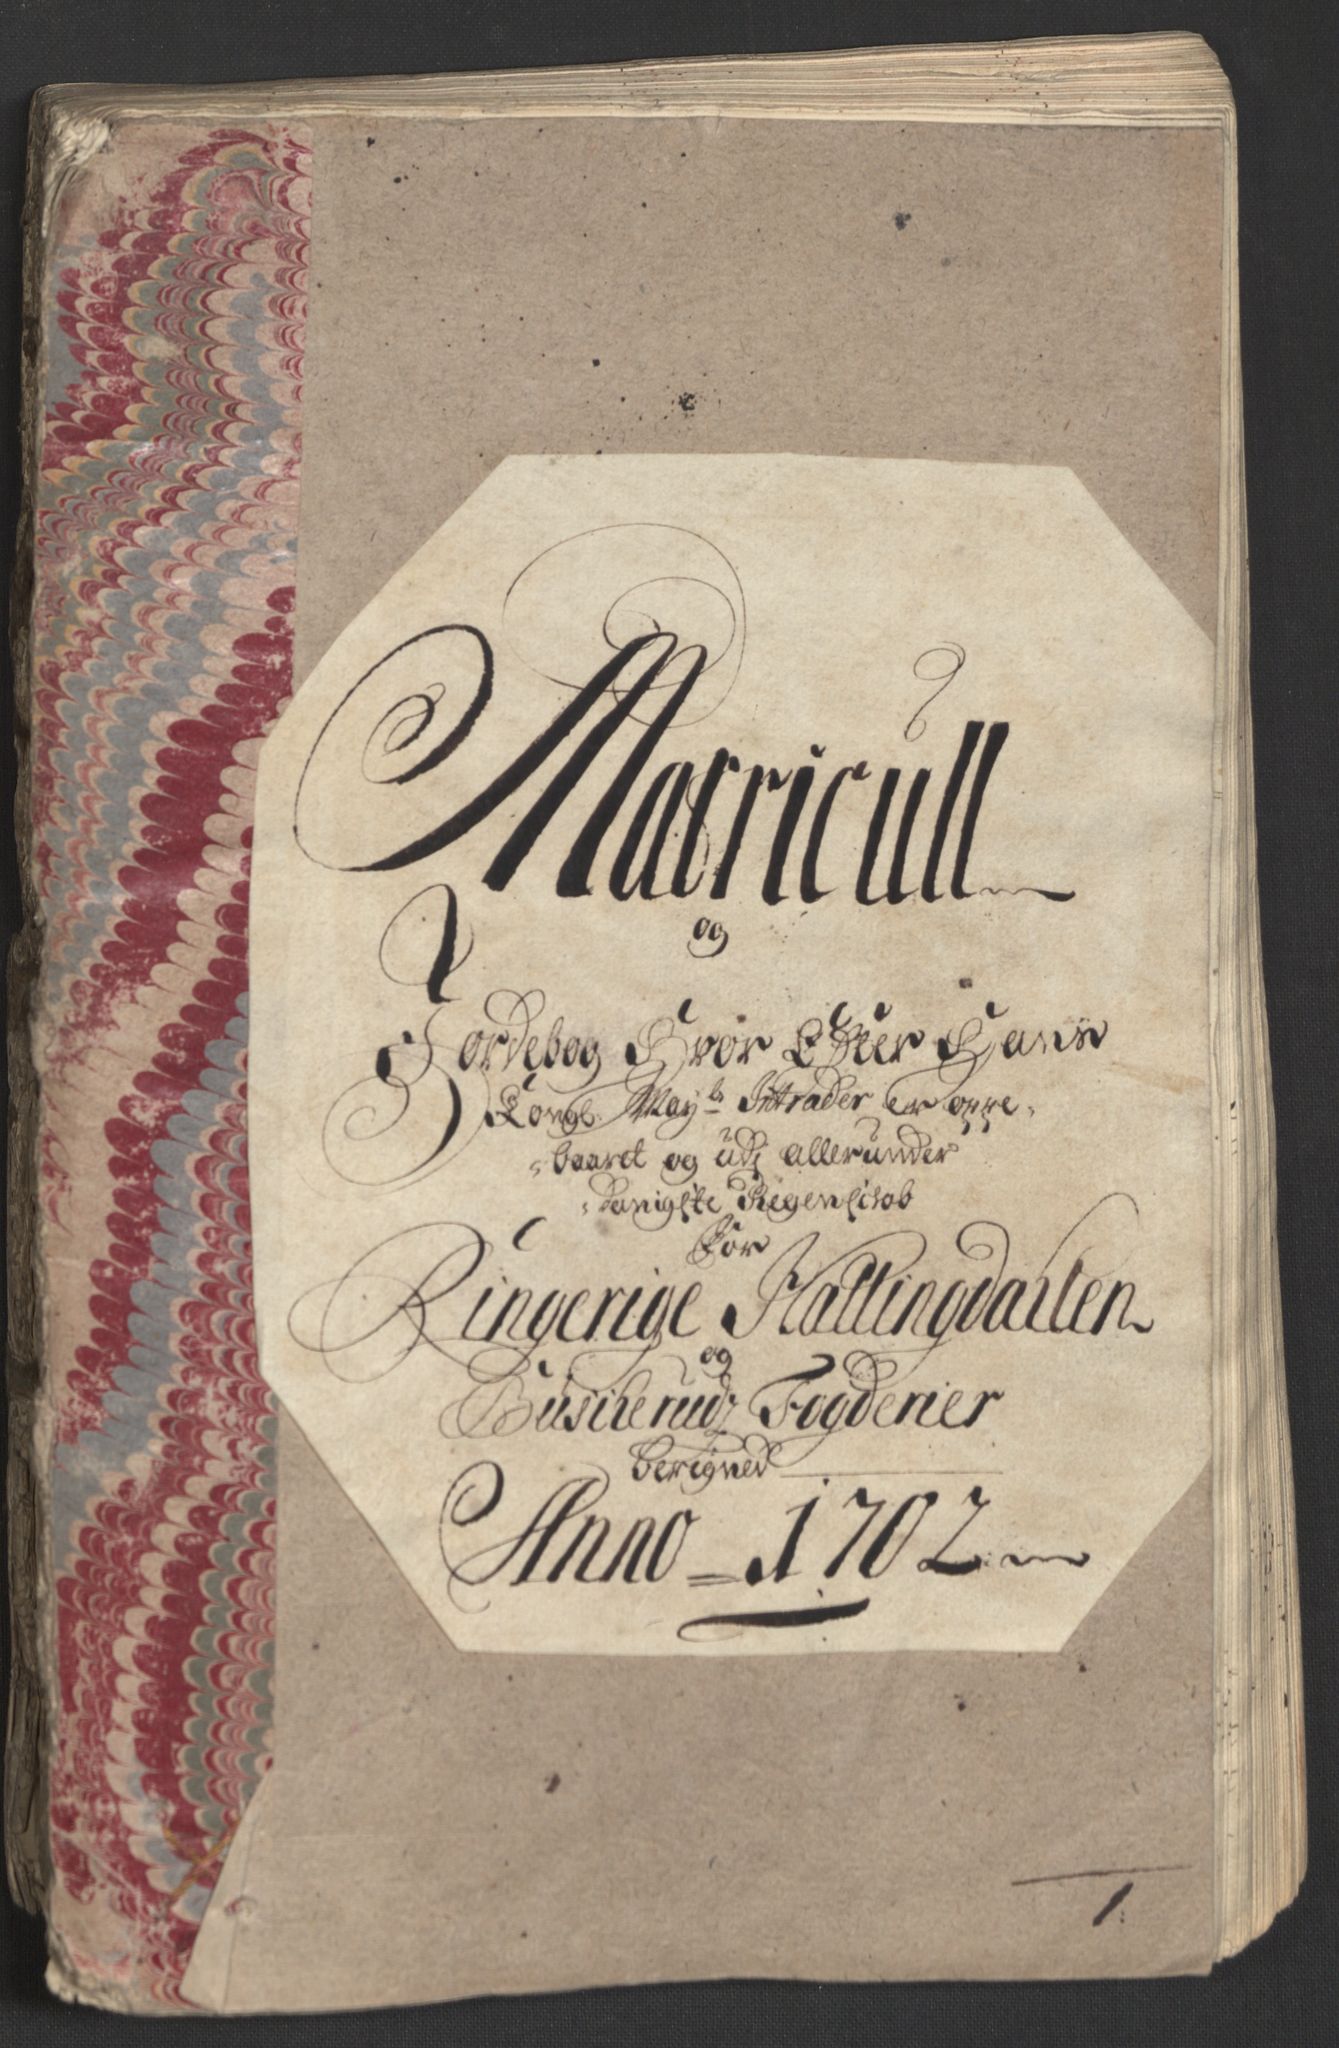 Matricull
og
Jordebog Hvor Effter Hans
Kongl: May: ts Intrader er oppe-
baaret og udj allerunder
danigste Regenschab
For
Ringerige Hallingdallen
og
Buscherudz Fogderier
beregned
Anno 1702
1